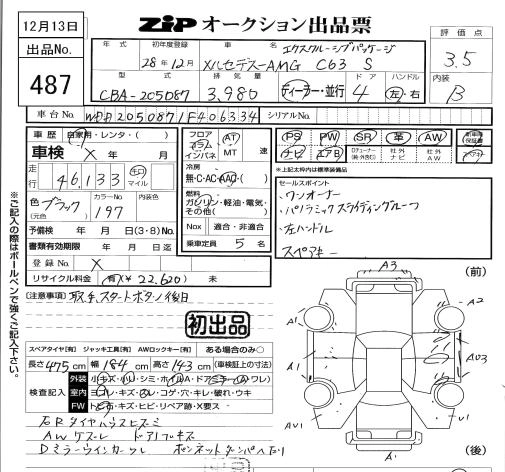 12月13日
ZIP オークション出品票
出品No.
487
年式 初年度登録 車名 エクスクルーシブパッケージ
28年12月 メルセデスAMG C63 S
評価点
3.5
型式 排気量 ドア ハンドル
CBA-205087 3,980 ディーラー・並行 4 左・右
内装
B
車台No. WDD2050871F406334 シリアルNo.
車歴 自家用・レンタ・( )
車検 X 年 月
走行 46,133 キロ マイル
色 ブラック (元色) カラーNo. 197
予備検 年 月 日(3・8)No.
書類有効期限 年 月 日迄
登録No. X
リサイクル料金 有(¥ 22,620) 未
フロア フラット インパネ AT MT 速
冷房 無・C・AC・AAC・( )
燃料 ガソリン・軽油・電気・その他( )
Nox 適合・非適合
乗車定員 5 名
PS PW SR 革 AW
ナビ エアB Dチューナー(純・外含む) 社外ナビ 社外AW
新車時保証書
※上記太枠内は標準装備品
セールスポイント
・ワンオーナー
・パノラミックスライディングルーフ
・左ハンドル
スペアキー
(注意事項) 取手、スタートボタン後日
初出品
スペアタイヤ[有] ジャッキ工具[有] AWロックキー[有] ある場合のみ○
長さ 475cm 幅 184cm 高さ 143cm (車検証上の寸法)
検査記入
外装 小キズ・小凹・シミ・ホイルA・ドアミラー(A・ワレ)
室内 ヨゴレ・キズ・スレ・コゲ・穴・キレ・破れ・ウキ
FW トビ石・キズ・ヒビ・リペア跡・X要ス
右Rタイヤハウスヒズミ
AWケズレ ドア内キズ
DミラーウインカーワレボンネットダンパーA有り
※ご記入の際はボールペンで強くご記入下さい。
(前)
A3
A1
A2
A1
AU3
AU1
U1
A1
(後)